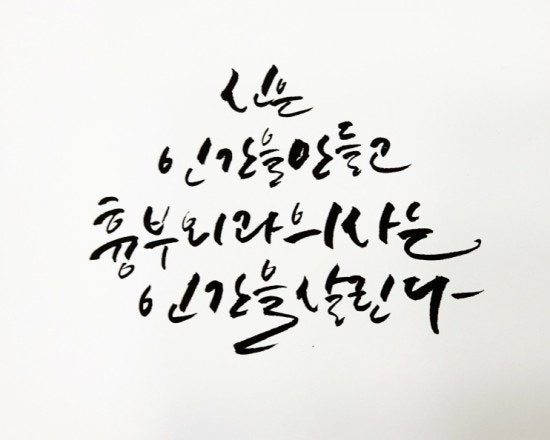 신은
인간을만들고
흉부외과의사는
인간을살린다